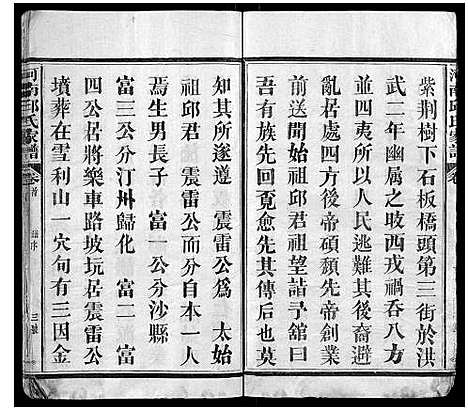 紫荆樹下石板橋頭第三街於洪
武二年幽属之歧西戎禍呑八方
並四夷所以人民逃難其後裔避
亂居處四方後帝碩頹先帝創業
前送開始祖邱君祖望詣予舘曰
吾有族先回覔愈先其傳后也莫
知其所遂遵 震雷公爲 太始
祖邱君 震雷公而分自本一人
焉生男長子 富一公分沙縣
富三公分汀州歸化 富二 富
四公居將樂車路坡玩居震雷公
墳葬在雪利山一穴句有三因金
河南邱氏家譜 卷首 序 三號
河南邱氏家譜 卷